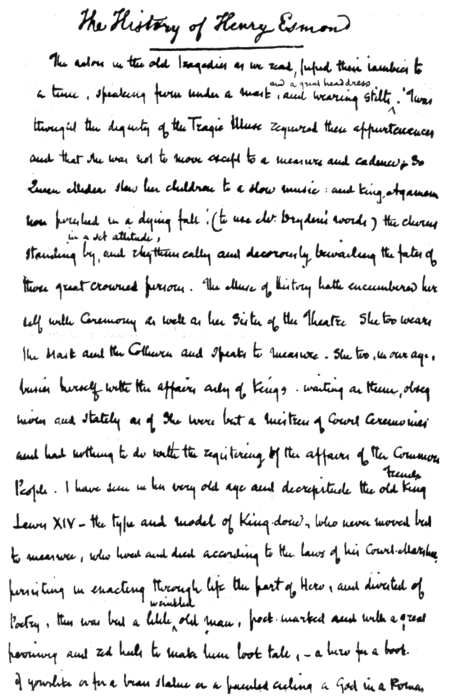 The History of Henry Esmond
The actors in the old Tragedies as we read, piped their iambics to
and a great headdress
a tune, speaking from under a mask, and wearing stilts. 'Twas
thought the dignity of the Tragic Muse required these appurtenances
and that she was not to move except to a measure and cadence. So
Queen Medea slew her children to a slow music: and King Agamem
non perished in a dying fall: (to use Mr. Dryden's words) the chorus
in a set attitude,
standing by, and rhythmically and decorously bewailing the fates of
those great crowned persons. The Muse of History hath encumbered her
self with Ceremony as well as her Sister of the Theatre She too wears
the Mask and the Cothurn and speaks to measure. She too, in our age,
busies herself with the affairs only of Kings. waiting on them, obseq
uious and stately as if She were but a Mistress of Court Ceremonies
and had nothing to do with the registering of the affairs of the Common
French
People. I have seen in his very old age and decrepitude the old King
Lewis XIV - the type and model of King-dom, who never moved but
to measure, who lived and died according to the laws of his Court-Marshal,
persisting in enacting through life the part of Hero, and divested of
wrinkled
Poetry, this was but a little old man, pock-marked and with a great
periwig and red heels to make him look tale, - a hero for a book
if you like or for a brass statue or a painted ceiling a God in a Roman